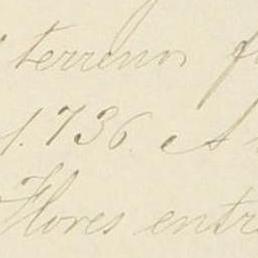 terreno
1.736. A
Flores entr